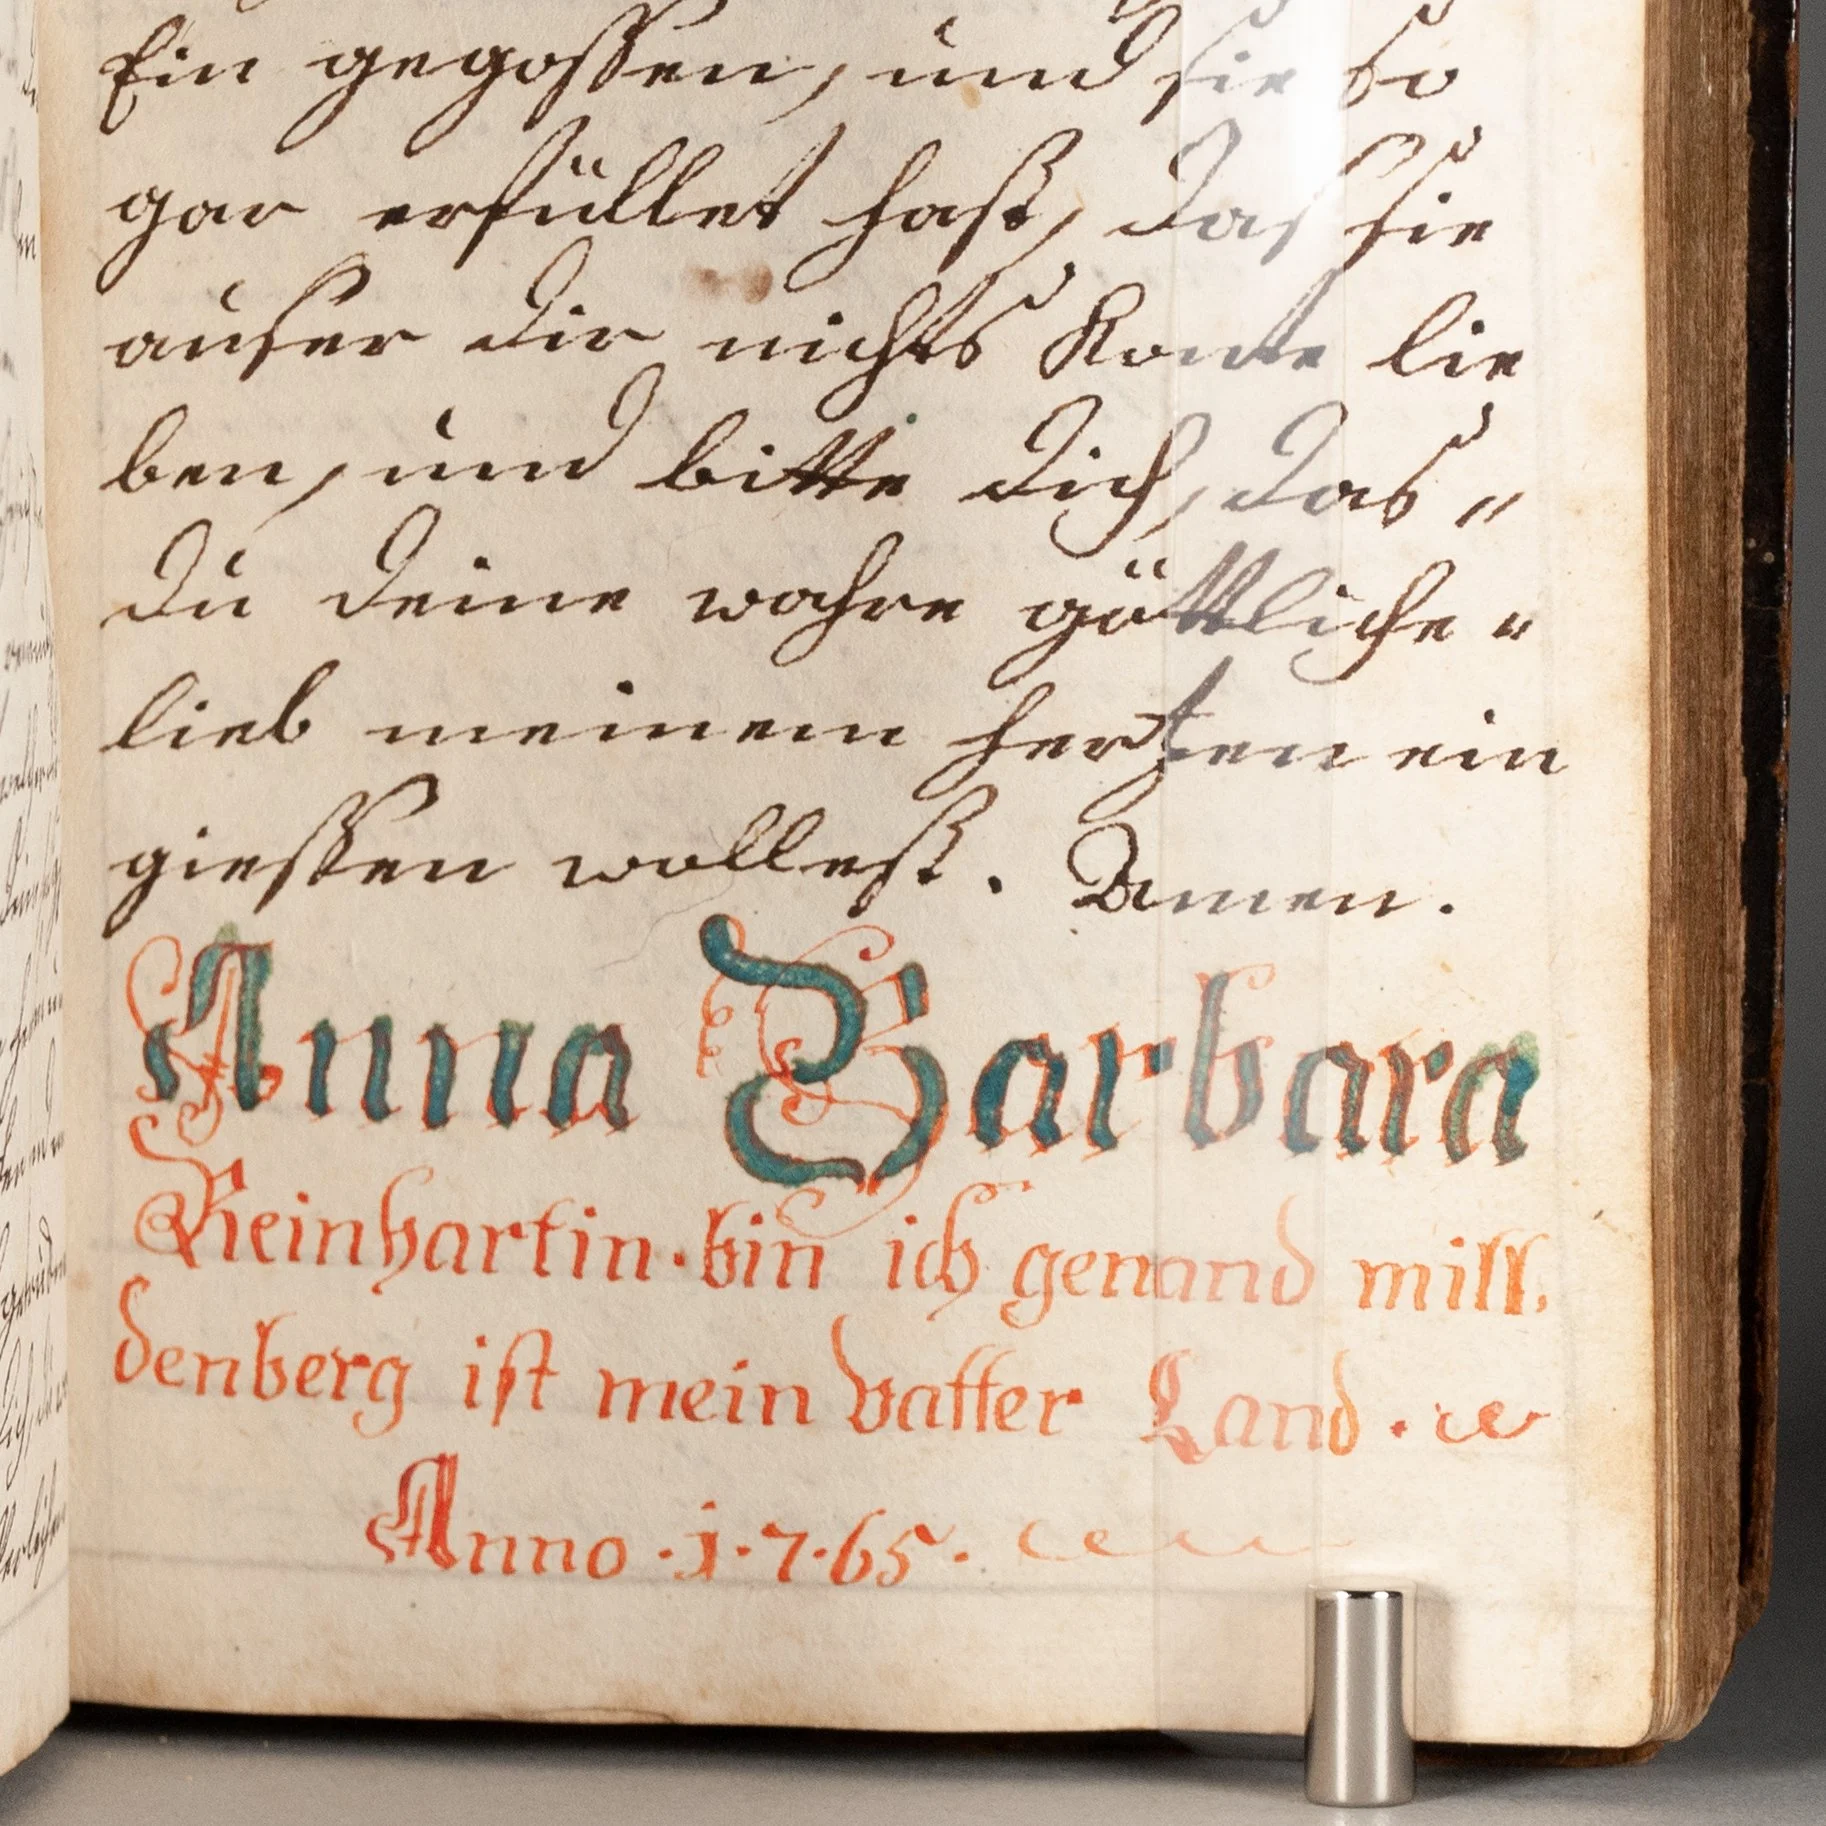 Ein gegossen, und sie so
gar erfüllet hast, das sie
auser dir nichts Konte lie
ben, und bitte dich, das„
du deine wahre göttliche„
lieb meinem hertzen ein
giessen wollest. Amen.
Anna Barbara
Reinhartin. bin ich genand mill.
denberg ist mein vatter Land.
Anno .1.7.65.